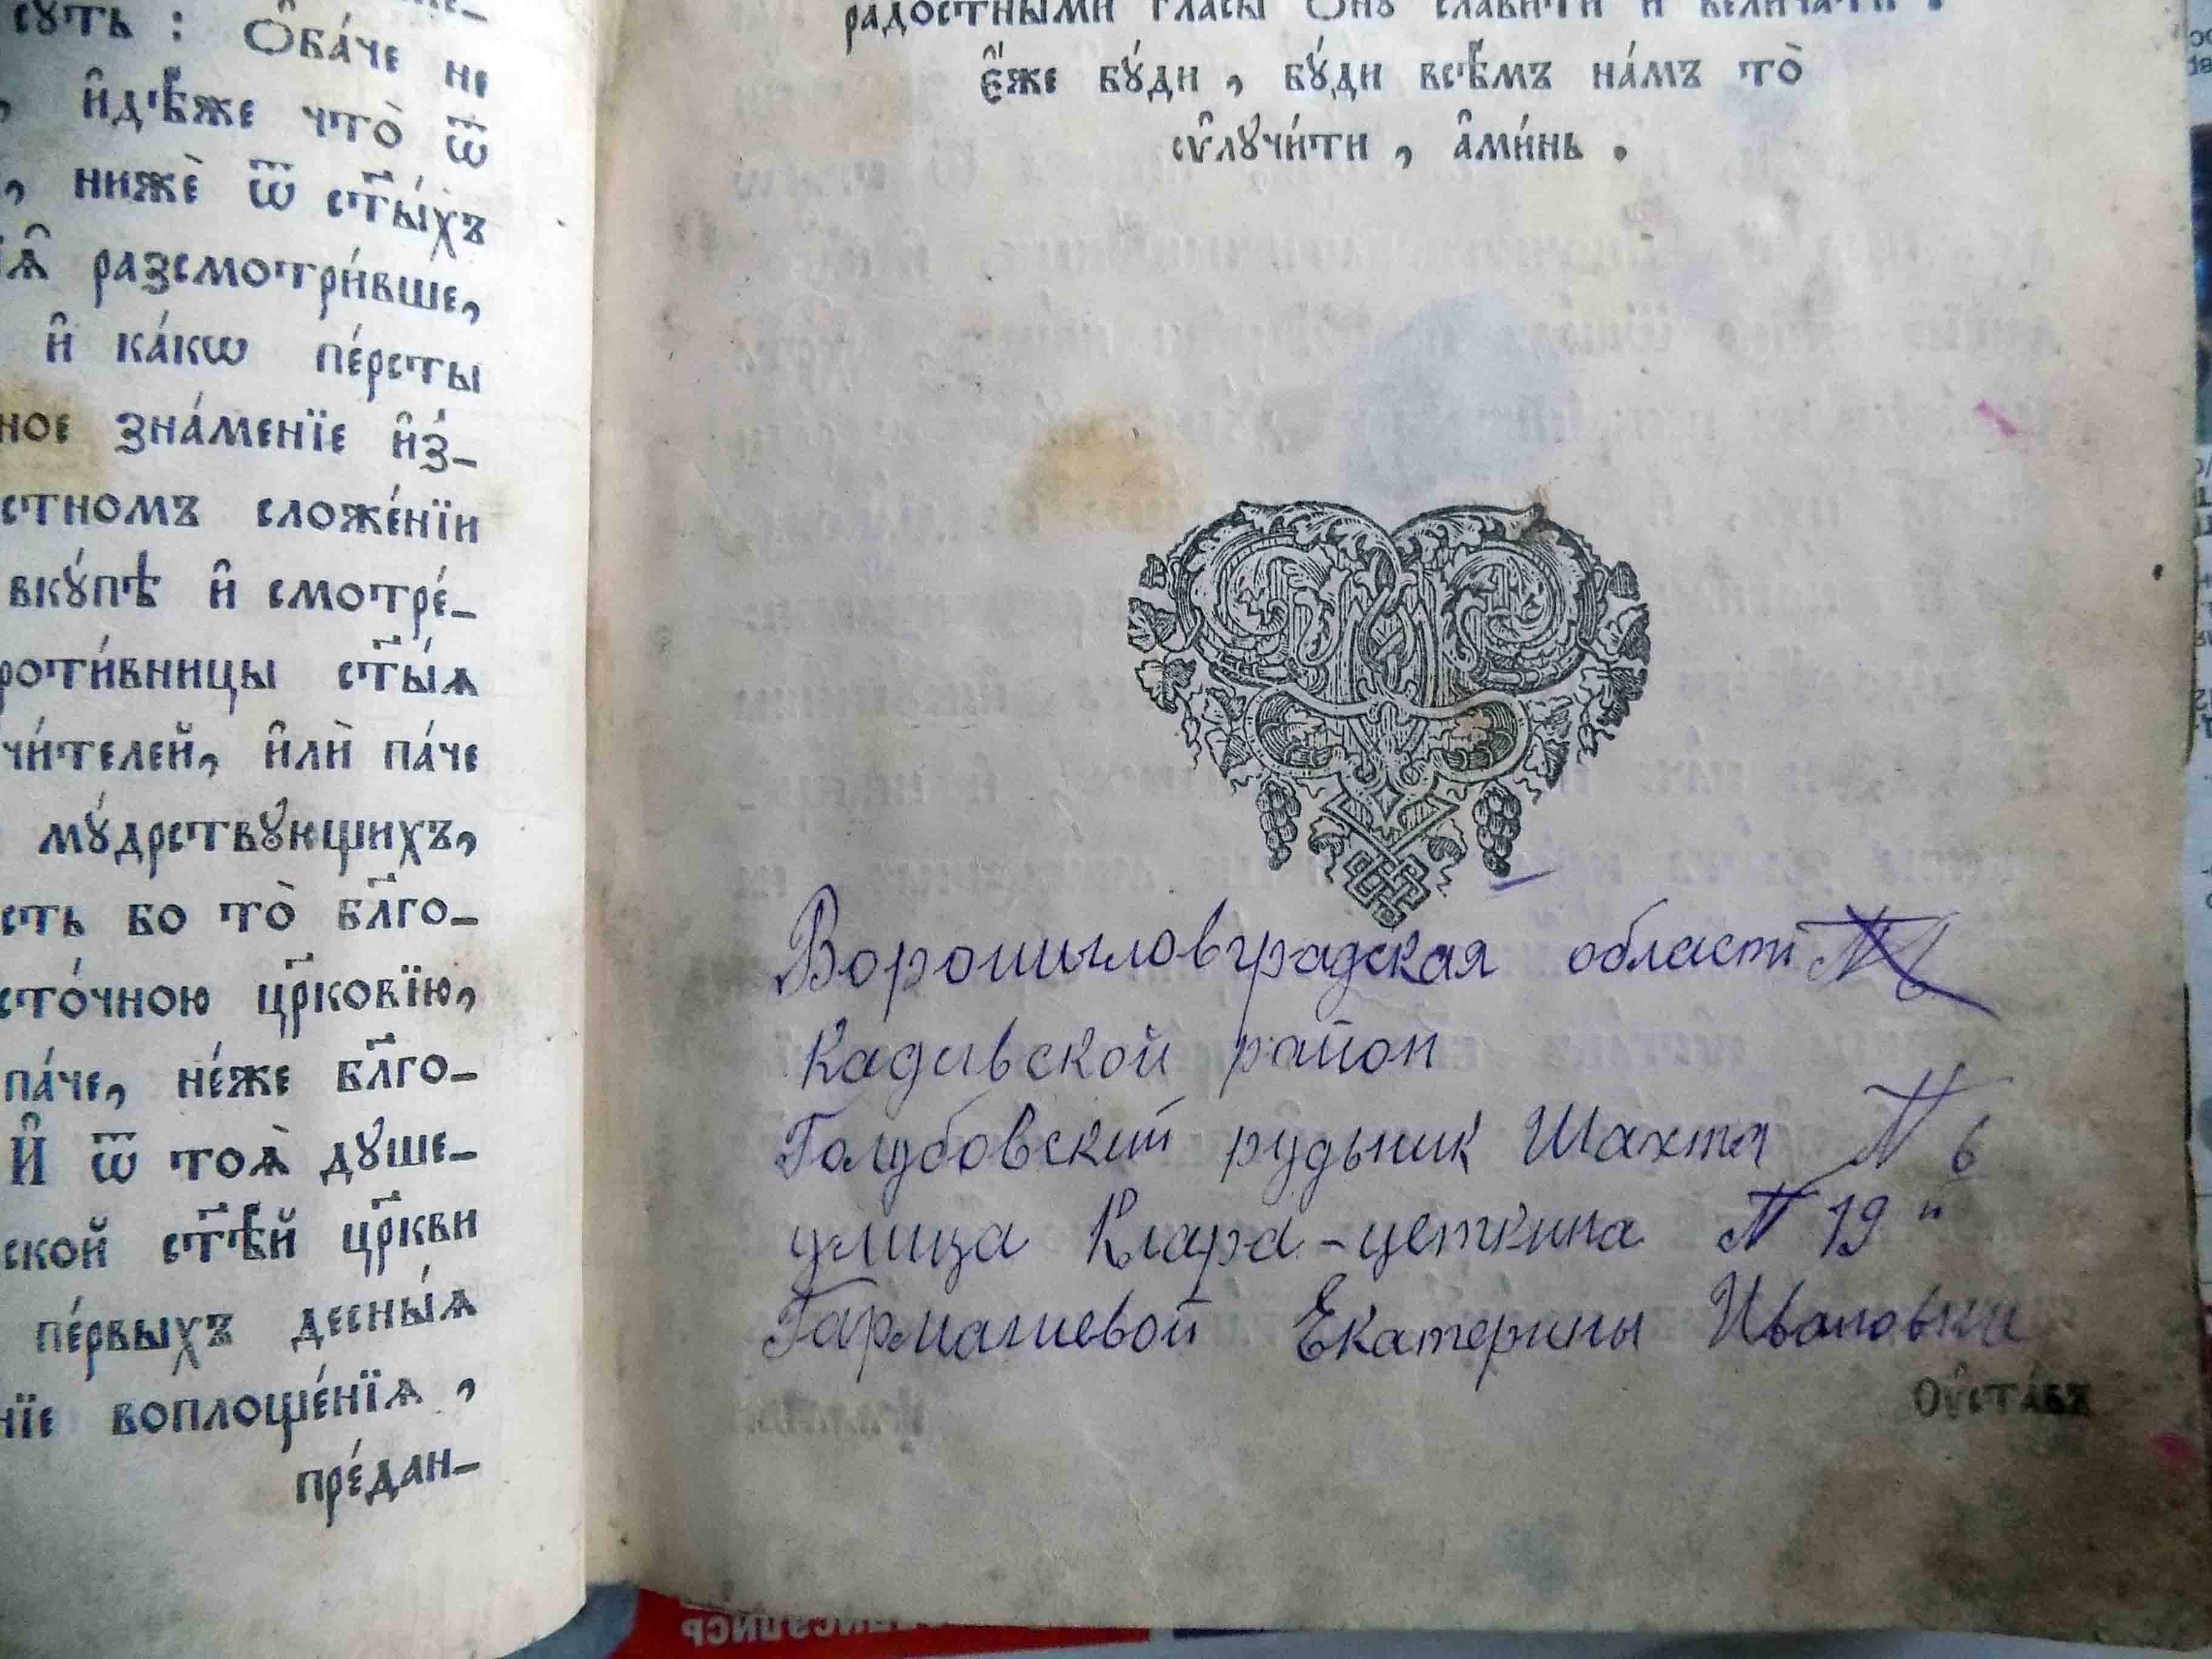 суть : Ѻ҆ба́че не
, и҆дѣ́же что̀ ѿ
, нижѐ ѿ ст҃ы́хъ
ѧ҆ разсмотри́вше,
и҆ ка́кѡ пе́рсты
ное зна́менїе и҆з̾-
стномъ сложе́нїи
вкꙋ́пѣ и҆ смотре́-
роти́вницы ст҃ы́ѧ
чи́телей, и҆лѝ па́че
мꙋ́дрствꙋющихъ,
сть бо то̀ бл҃го-
сто́чною цр҃ковїю,
па́че, не́же бл҃го-
И҆ ѿ тоѧ̀ дꙋше-
ской ст҃ѣ́й цр҃кви
пе́рвыхъ десны́ѧ
нїе воплоще́нїѧ ,
пре́дан-
радостными гласы Ѻнꙋ славити и величати .
Є҆́же бꙋ́ди , бꙋ́ди всѣ́мъ на́мъ то̀
сѷлꙋчи́ти , а҆ми́нь .
Ворошыловградская област
Кадивской район
Голубовский рудьник Шахта N 6
улица Клара-цеткина N 19 "
Гармашевой Екатерины Ивановны
Оуста́въ